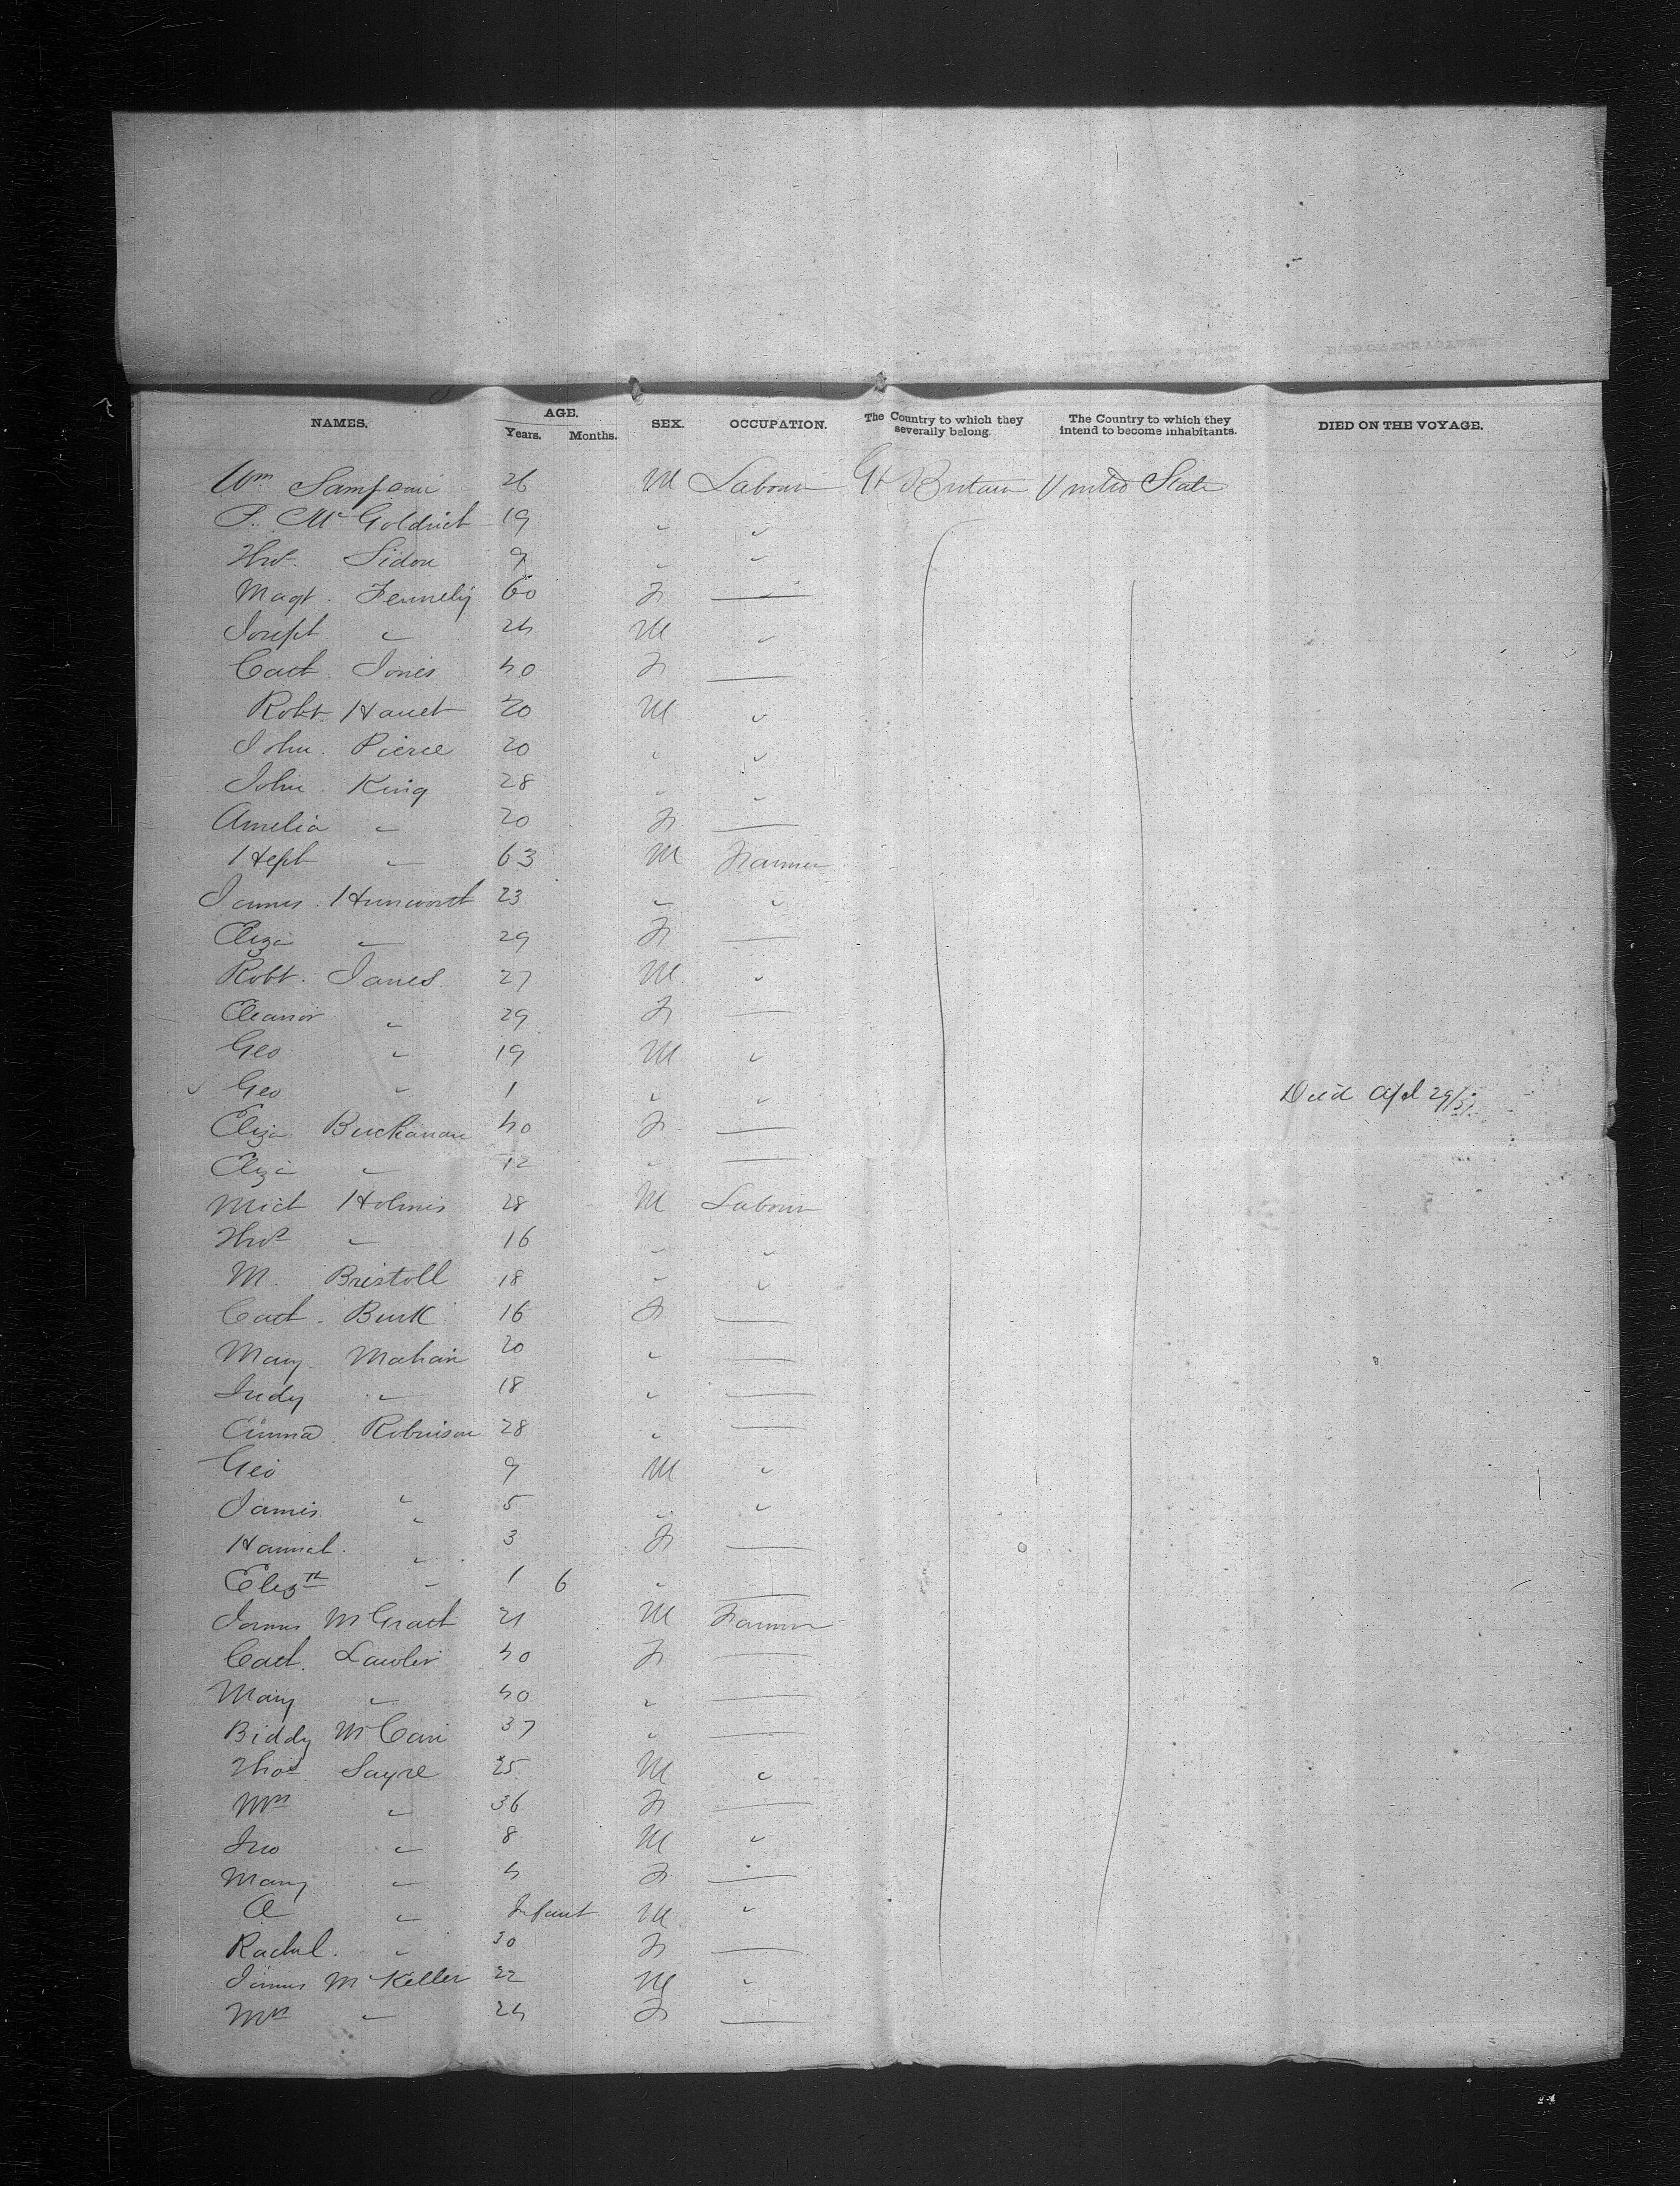 NAMES. AGE. Years. Months. SEX. OCCUPATION. The Country to which they severally belong. The Country to which they intend to become inhabitants. DIED ON THE VOYAGE.
Wm 26 M Labour Gt Britain United State
P. McGoldrick 19 " "
Thos. Sidon 9 " "
Magt. Fennely 60 F —
Joseph " 24 M "
Cath. Jones 40 F —
Robt. 20 M "
John. Pierce 20 " "
John. King 28 " "
Amelia " 20 F —
" 63 M Farmer
James. 23 " "
Eliza " 29 F —
Robt. Janes 27 M "
Eleanor " 29 F —
Geo " 19 M "
✓ Geo " 1 " " Died 29/57
Eliza. Buchanan 40 F —
Eliza " 12 " —
Mich Holmes 28 M Labour
Thos " 16 " "
M. Bristoll 18 " "
Cath. Burk 16 F —
Mary. Mahan 20 " —
Judy " 18 " —
Emma Robinson 28 " —
Geo " 9 M "
James " 5 " "
Hannah. " 3 F —
Elizth " 1 6 " —
James McGrath 21 M Farmer
Cath. Lawler 40 F —
Mary " 40 " —
Biddy McCan 37 " —
Thos Sayre 25 M "
Mrs " 36 F —
Jno " 8 M "
Mary " 4 F —
A " Infant M "
Rachel. " 30 F —
James McKeller 22 M "
Mrs " 24 F —